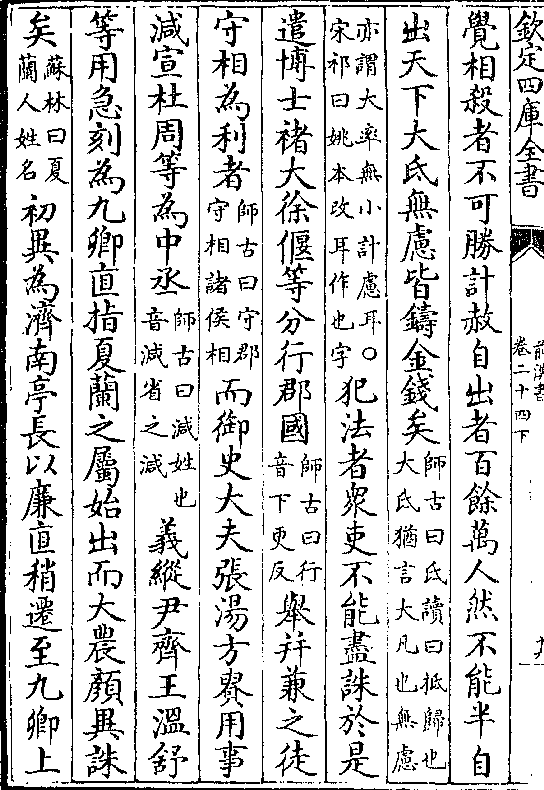 欽定四庫全書
前漢書
卷二十四下
九
覺相殺者不可勝計赦自出者百餘萬人然不能半自
出天下大氐無慮皆鑄金錢矣師古曰氐讀曰抵歸也
大氐猶言大凡也無慮
亦謂大率無小計慮耳○
宋祁曰姚本改耳作也字
犯法者眾吏不能盡誅於是
遣博士禇大徐偃等分行郡國師古曰行
音下更反
舉并兼之徒
守相為利者師古曰守郡
守相諸侯相
而御史大夫張湯方貴用事
減宣杜周等為中丞師古曰減姓也
音減省之減
義縱尹齊王溫舒
等用急刻為九卿直指夏蘭之屬始出而大農顏異誅
矣蘇林曰夏
蘭人姓名
初異為濟南亭長以廉直稍遷至九卿上